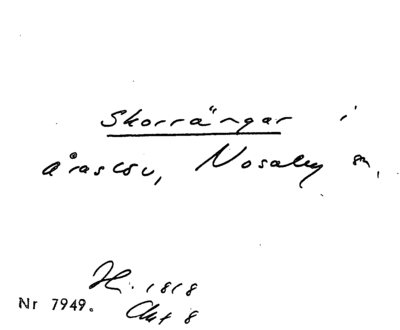 Skorrängar i
Åraslöv, Nosaby sn,
1818
Nr 7949. Akt 8